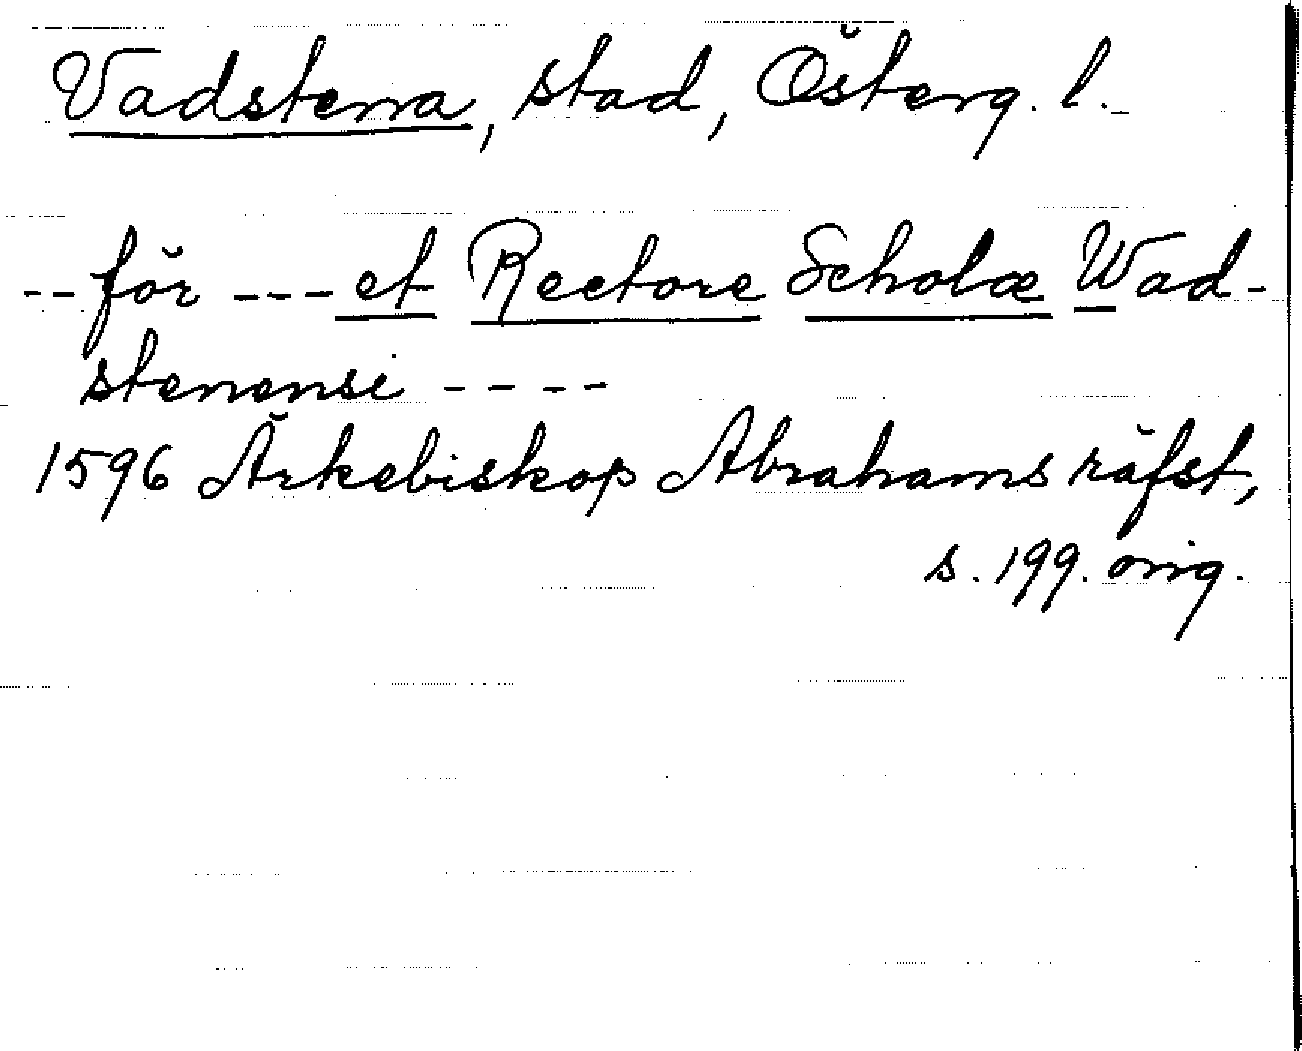 Vadstena, stad, Österg. l.
-- för --- et Rectore Scholæ Wad-
stenensi ----
1596 Ärkebiskop Abrahams räfst,
s. 199. orig.